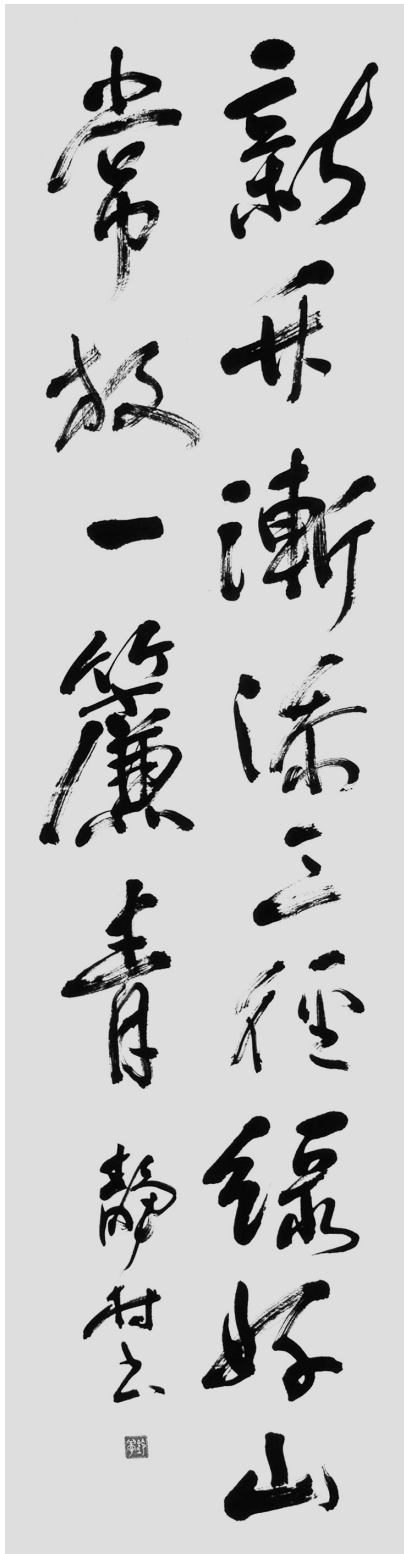 新开漸添三徑綠好山
常放一簾青
靜村書